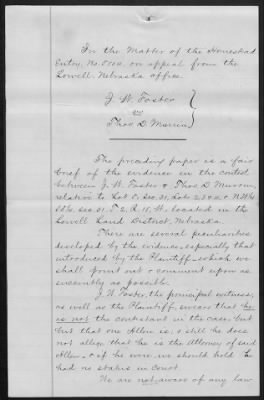 In the Matter of the Homestead
Entry, No. on appeal from the
Lowell Nebraska office.
J. W. Foster
vs
Theo. D. Munson
The preceding paper is a fair
brief of the evidence in the contest
between J. W. Foster & Theo D. Munson,
relative to Lot
Sec. 31, T 2, R 10, W. located in the
Lowell Land District, Nebraska.
There are several peculiarities
developed by the evidence, especially that
introduced by the Plaintiff, which we
shall point out & comment upon as
succinctly as possible.
J. W. Foster, the principal witness,
as well as the Plaintiff, swears that he
is not the contestant in the case, but
but that one Allen is, & still he does
not allege that he is the Attorney of said
Allen, & if he were, we should hold he
had no status in Court.
We are not aware of any law